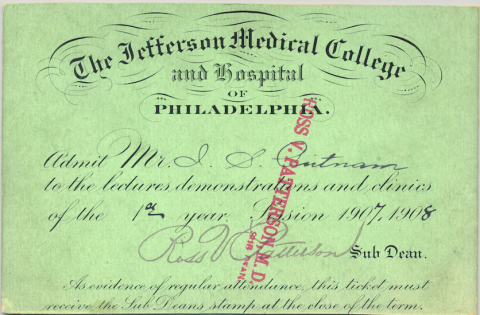 The Jefferson Medical College
and Hospital
OF
PHILADELPHIA.
Admit Mr. I. S. Putnam
to the lectures demonstrations and clinics
of the 1st year. Session 1907, 1908
Ross V Patterson Sub Dean.
As evidence of regular attendance, this ticket must
receive the Sub Deans stamp at the close of the term.
ROSS V. PATTERSON, M. D.
SUB-DEAN.